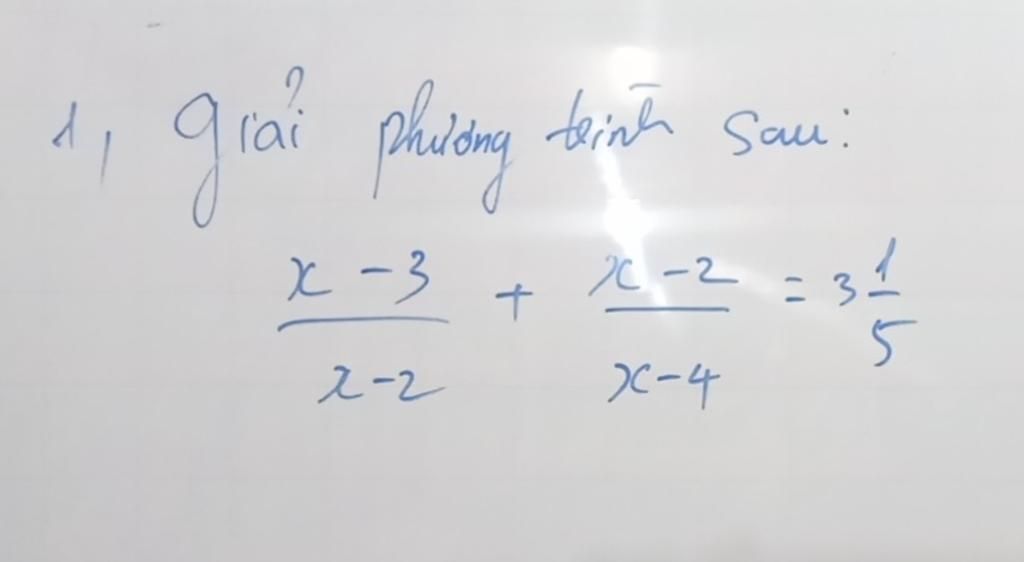 1, Giải phương trình sau:
x - 3 / x - 2 + x - 2 / x - 4 = 3 1/5